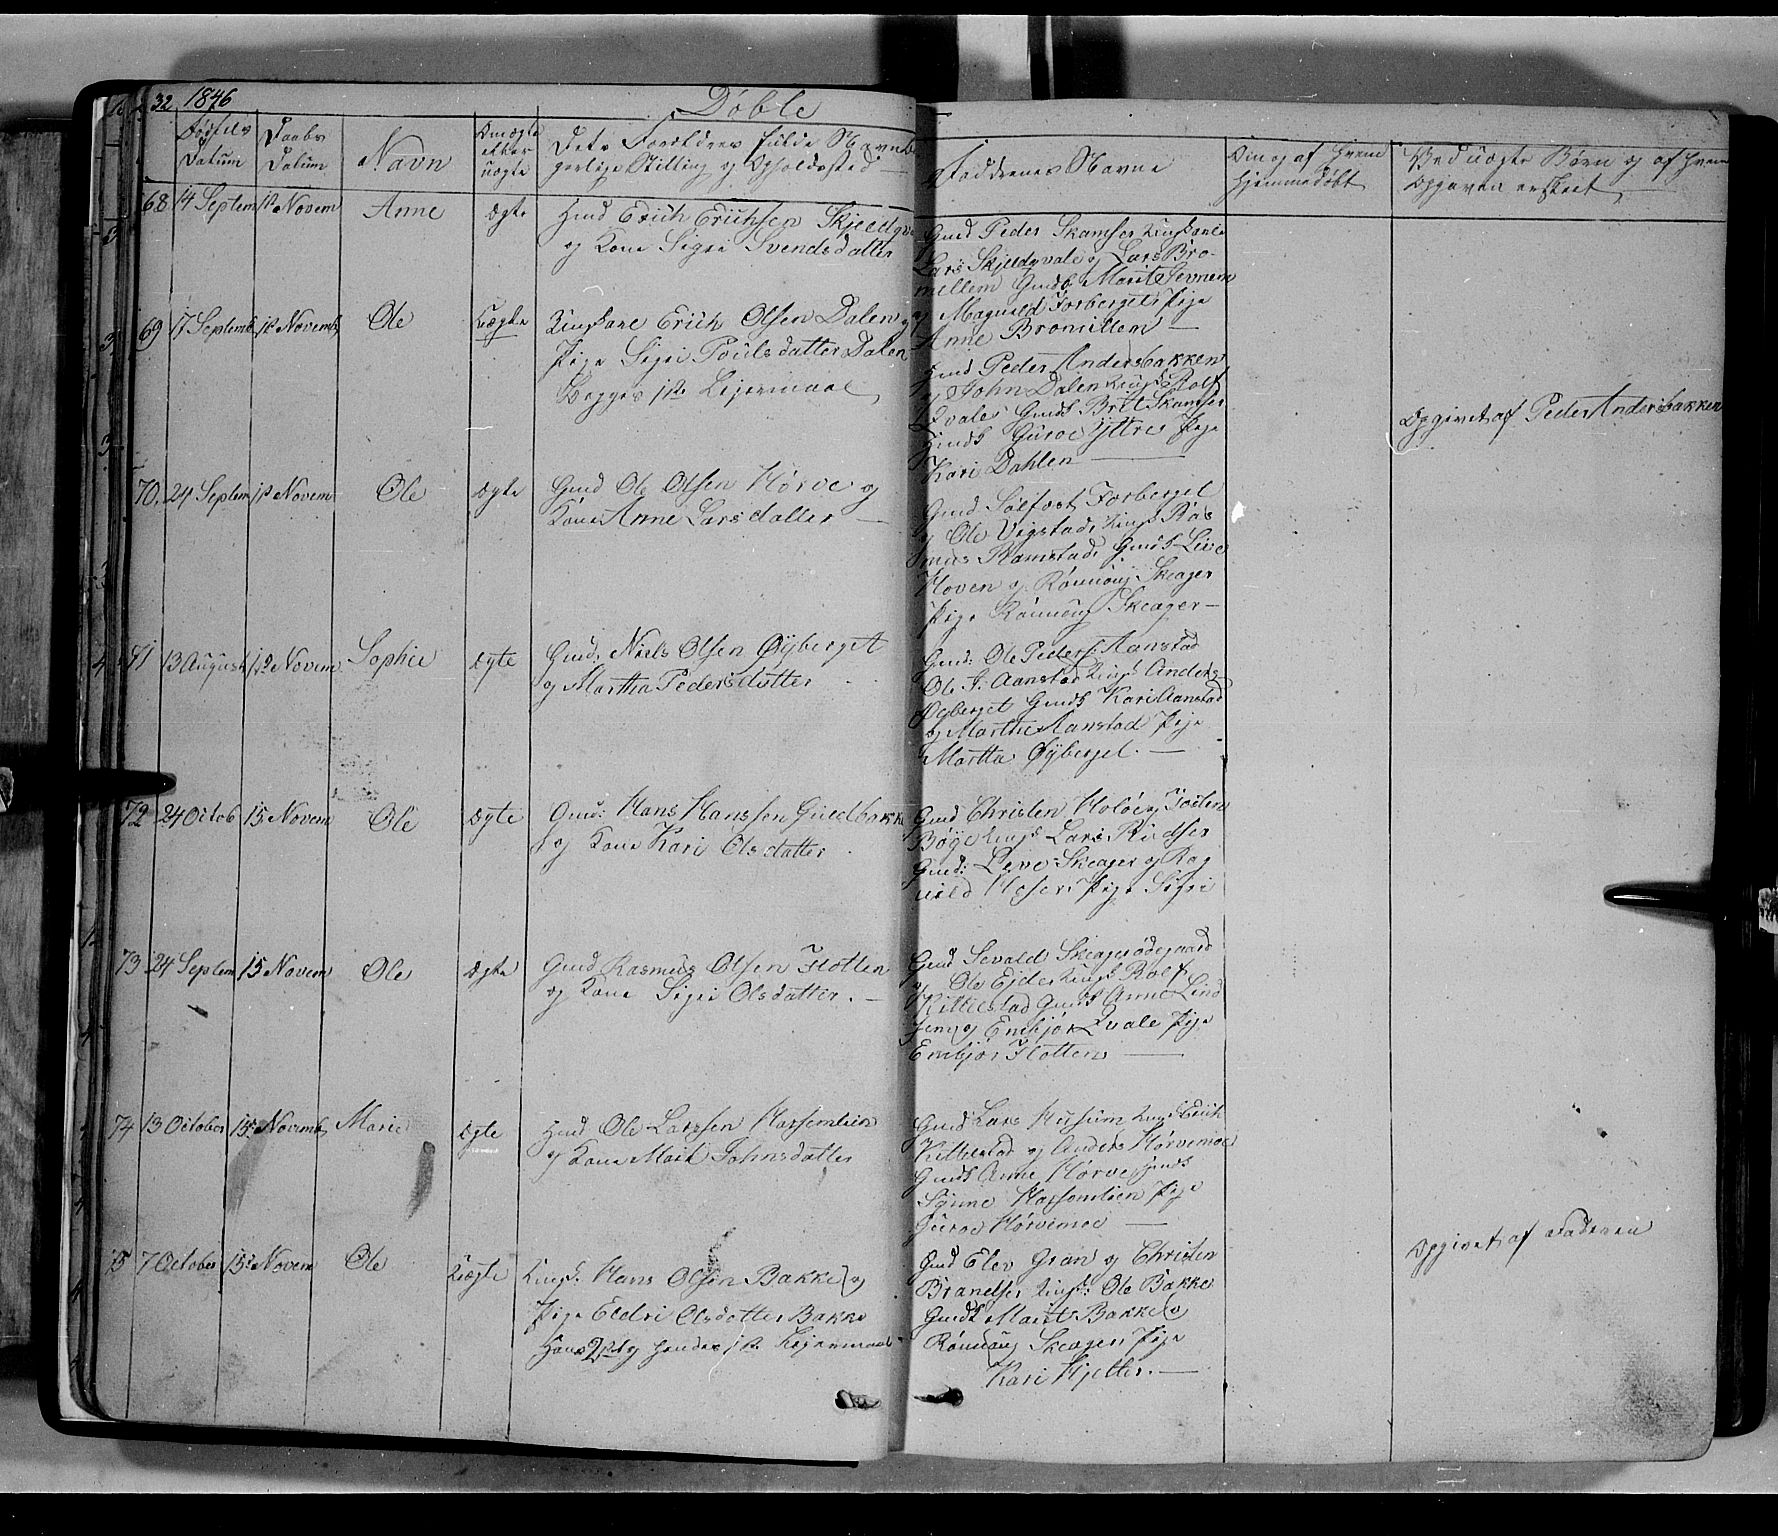 32 1846 Döble
Födsels Datum
Daabs Datum
Navn
Om ægte eller uægte
Dets Forældres fulde Navn
gerlige Stilling og Opholdssted
Faddrenes Navne
Om og af hvem hjemmedöbt
Ved uægte Börn og af hvem Opgaven er skeet
68 14 Septem 1ste Novem Anne Ægte
Huusd Erich Erichsen Skjeldqva
og Kone Sigri Svendsdatter
Gmd Peder Skamser Ungkarle
Lars Skjeldqvale og Lars Bro-
millem Gmdk Marit Jevnem
og Magnild Forberget Pige
Anne Bromillem —
69 17 Septemb 1ste Novemb Ole Uægte
Ungkarl Erich Olsen Dalen og
Pige Sigri Poulsdatter Dalen
Begges 1ste Lejermaal
Huusd Peder Andersbakken
og John Dalen Ungk Rolf
Qvale Gmdk Brit Skamser
Huusk Guroe Yttrie Pige
Kari Dahlen —
Opgivet af Peder Andersbakken
70. 24 Septem 1ste Novem Ole Ægte
Gmd Ole Olsen Hörve og
Kone Anne Larsdatter —
Gmd Solfest Forberget
og Ole Vigstad, Ungk Ras
mus Ramstad, Gmdk Live
Hoven og Rönnoug Skeager
Pige Rönnoug Skeager —
71 13 August 1ste Novem Sophie Ægte
Gmd: Niels Olsen Öyberget
og Martha Pedersdatter
Gmd: Ole Peders: Aanstad
Ole J: Aanstad Ungk Anders
Öyberget Gmdk Kari Aanstad
og Marthe Aanstad Pige
Martha Öyberget. —
72 24 Octob 15 Novem Ole Ægte
Gmd: Hans Hansen Guldbakke
og Kone Kari Olsdatter
Gmd Christen Holöe og Josten
Böye Ungk Lars Ridser
Gmd: Leve Skeager og Rag
nild Moser Pige Sigri
73 24 Septem 15 Novem Ole Ægte
Gmd Rasmus Olsen Flotten
og Kone Sigri Olsdatter. —
Gmd Sevald Skeagerödegaard
og Ole Ejde Ungk Rolf
Kittelstad Gmdk Anne Lind
og Embjör Qvale Pige
Embjör Flotten —
74 13 October 15 Novemb Marie Ægte
Huusd Ole Larsen Harsemlien
og Kone Marit Johnsdatter
Gmd Lars Husum Ungk Erich
Kittelstad og Anders Hörvemoe
Gmdk Anne Hörve, Gmdk
Synne Harsemlien Pige
Guroe Hörvemoe —
75 7 October 15 Novem Ole Uægte
Ungk: Hans Olsen Bakke og
Pige Eldri Olsdatter Bakke
Hans 2det og hendes 1ste Lejermaal —
Gmd Elev Gran og Christen
Brandser Ungk: Ole Bakke
Gmdk Marit Bakke og
Rönnoug Skeager Pige
Kari Hjelter. —
Opgivet af Faderen